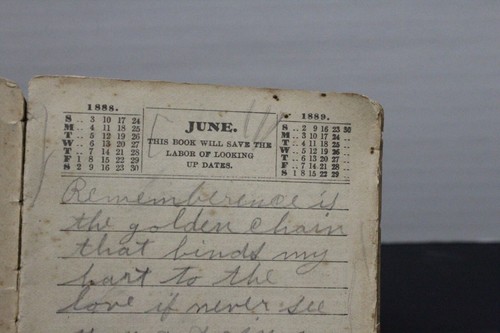 1888.
S .. 3 10 17 24
M .. 4 11 18 25
T .. 5 12 19 26
W .. 6 13 20 27
T .. 7 14 21 28
F 1 8 15 22 29
S 2 9 16 23 30
JUNE.
THIS BOOK WILL SAVE THE
LABOR OF LOOKING
UP DATES.
1889.
S .. 2 9 16 23 30
M .. 3 10 17 24 ..
T .. 4 11 18 25 ..
W .. 5 12 19 26 ..
T .. 6 13 20 27 ..
F .. 7 14 21 28 ..
S 1 8 15 22 29 ..
Rememberence is
the golden chain
that binds my
hart to the
love if never see
you again